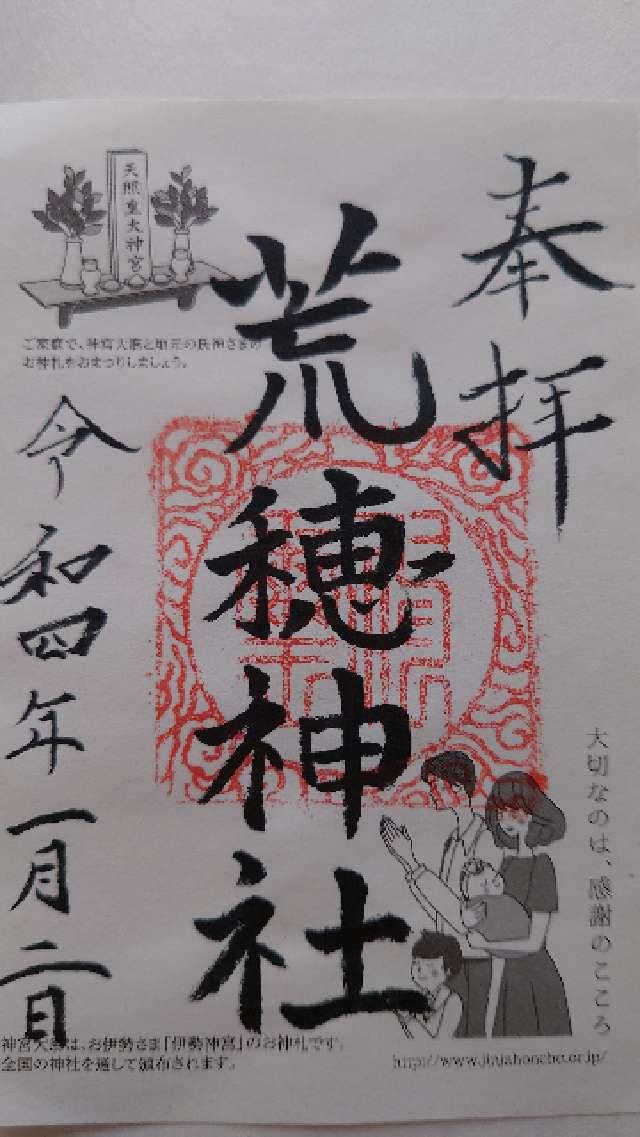 奉拝
荒穂神社
令和四年一月二日
天照皇大神宮
ご家庭で、神宮大麻と地元の氏神さまの
お神札をおまつりしましょう。
大切なのは、感謝のこころ
神宮大麻は、お伊勢さま「伊勢神宮」のお神札です。
全国の神社を通して頒布されます。
http://www.jinjahoncho.or.jp/